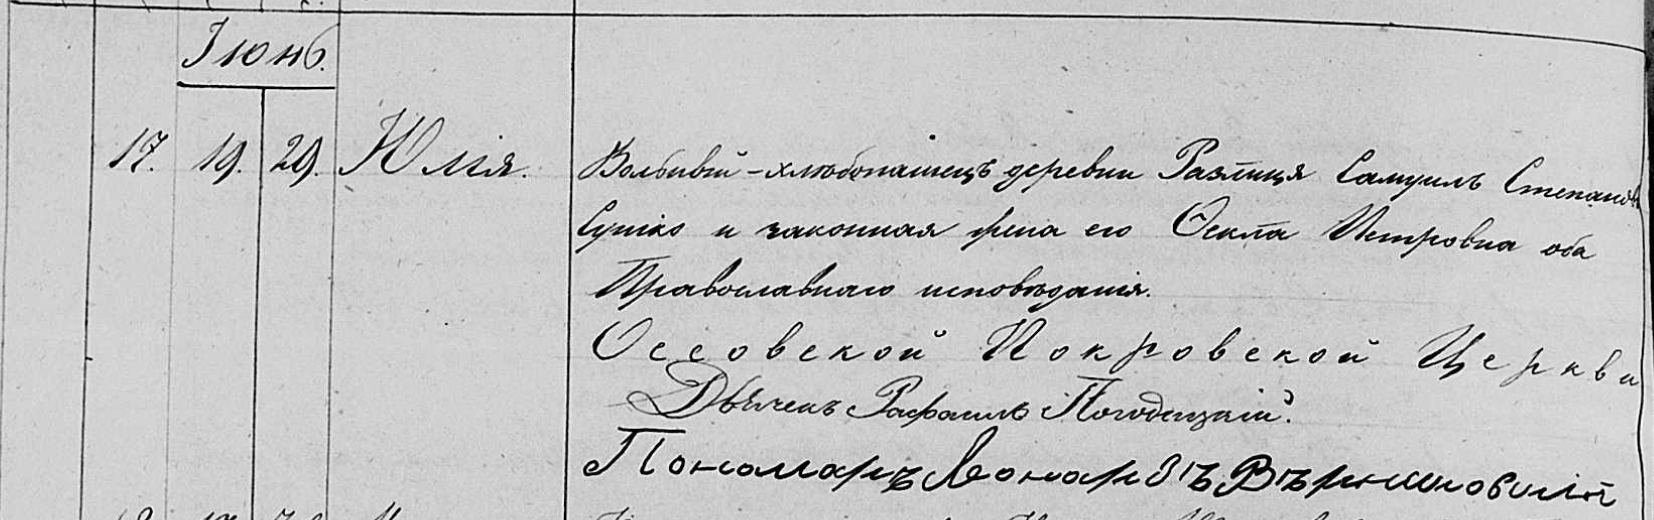 Іюнь.
17. 19. 29. Юлія.
Вольный-хлѣбопашецъ деревни Самуилъ Степановъ
и законная жена его Ѳекла Петровна оба
Православнаго исповѣданія.
Оссовской Покровской Церкви
Дьячекъ Рафаилъ
Пономаръ Леонардъ